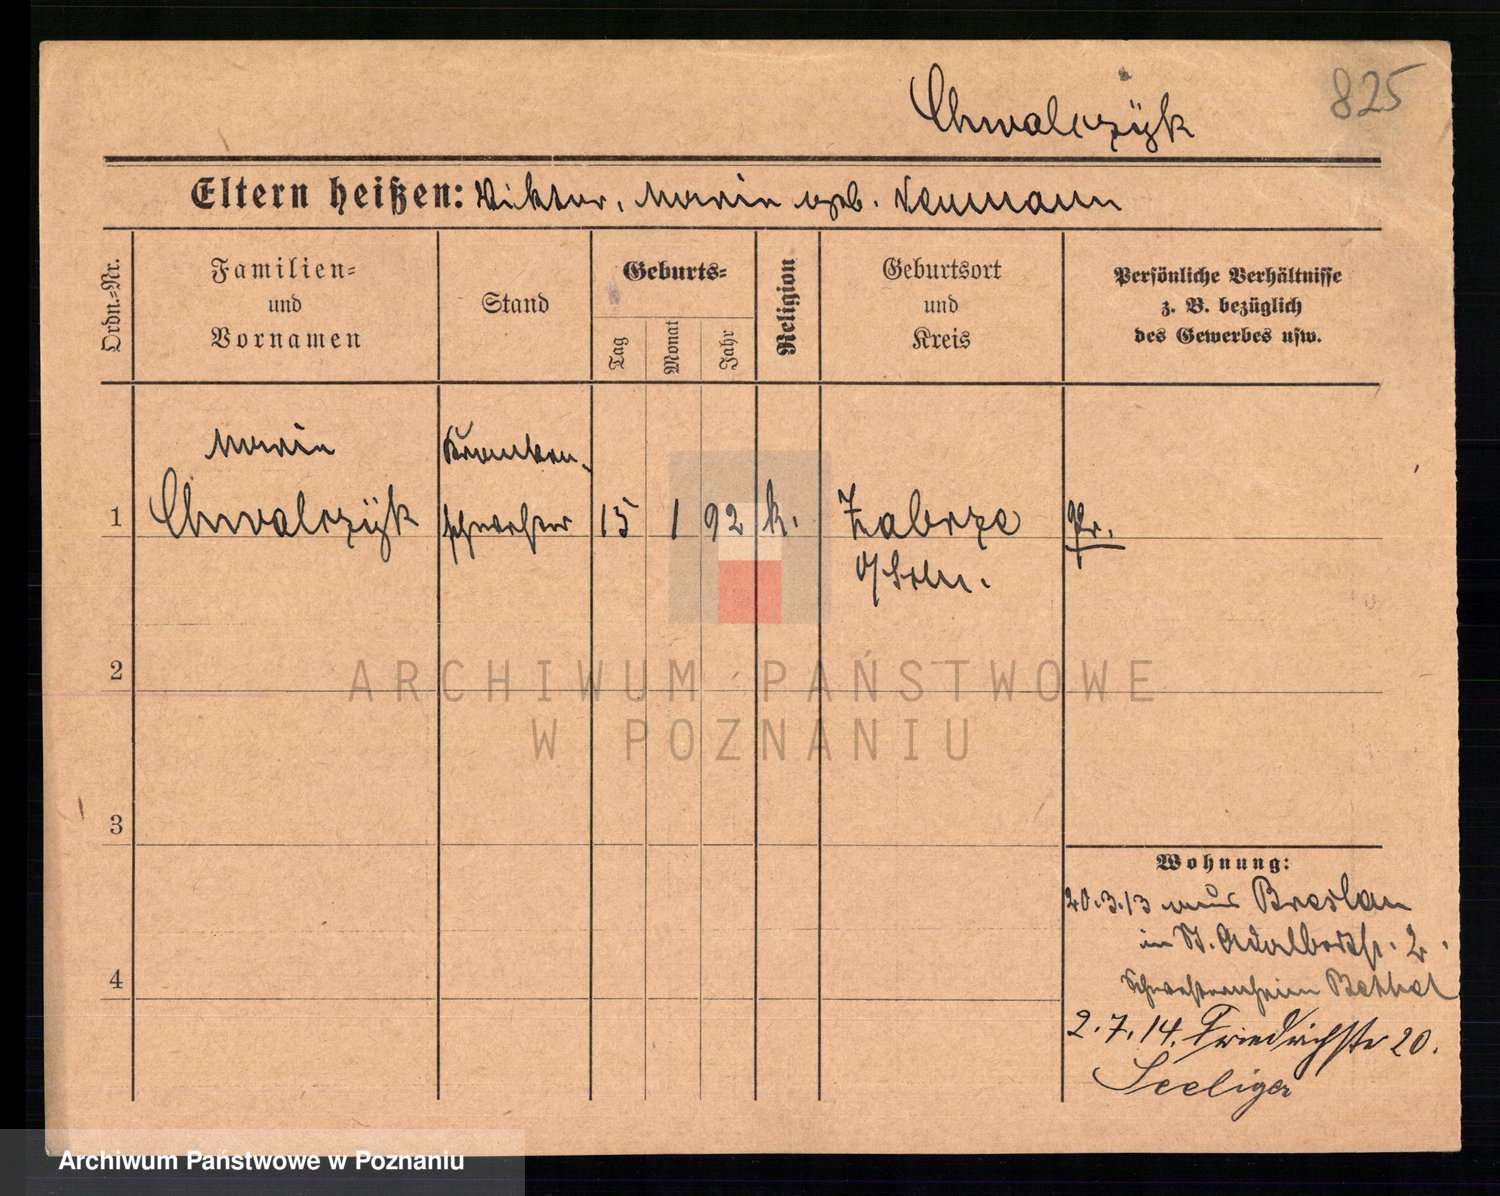 825
Chwalczÿk
Eltern heißen: Viktor, Marie geb. Neumann
Ordn.=Nr.
Familien=
und
Vornamen
Stand
Geburts=
Tag
Monat
Jahr
Religion
Geburtsort
und
Kreis
Persönliche Verhältnisse
z. B. bezüglich
des Gewerbes usw.
Marie
Kranken-
1 Chwalczÿk schwester 15 1 92 k. Zabrze Pr.
O/Schles.
2
3
4
Wohnung:
20.3.13 aus Breslau
in St. Adalbertstr. 2.
Schwesternheim Bethel
2.7.14. Friedrichstr 20.
Seeliger
ARCHIWUM PAŃSTWOWE
W POZNANIU
Archiwum Państwowe w Poznaniu